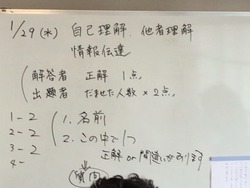 1/29(水) 自己理解 他者理解
情報伝達
解答者 正解 1点,
出題者 だませた人数×2点,
1-2
2-2
3-2
4-
1. 名前
2. この中で1つ
正解 or 間違いがあります
質問